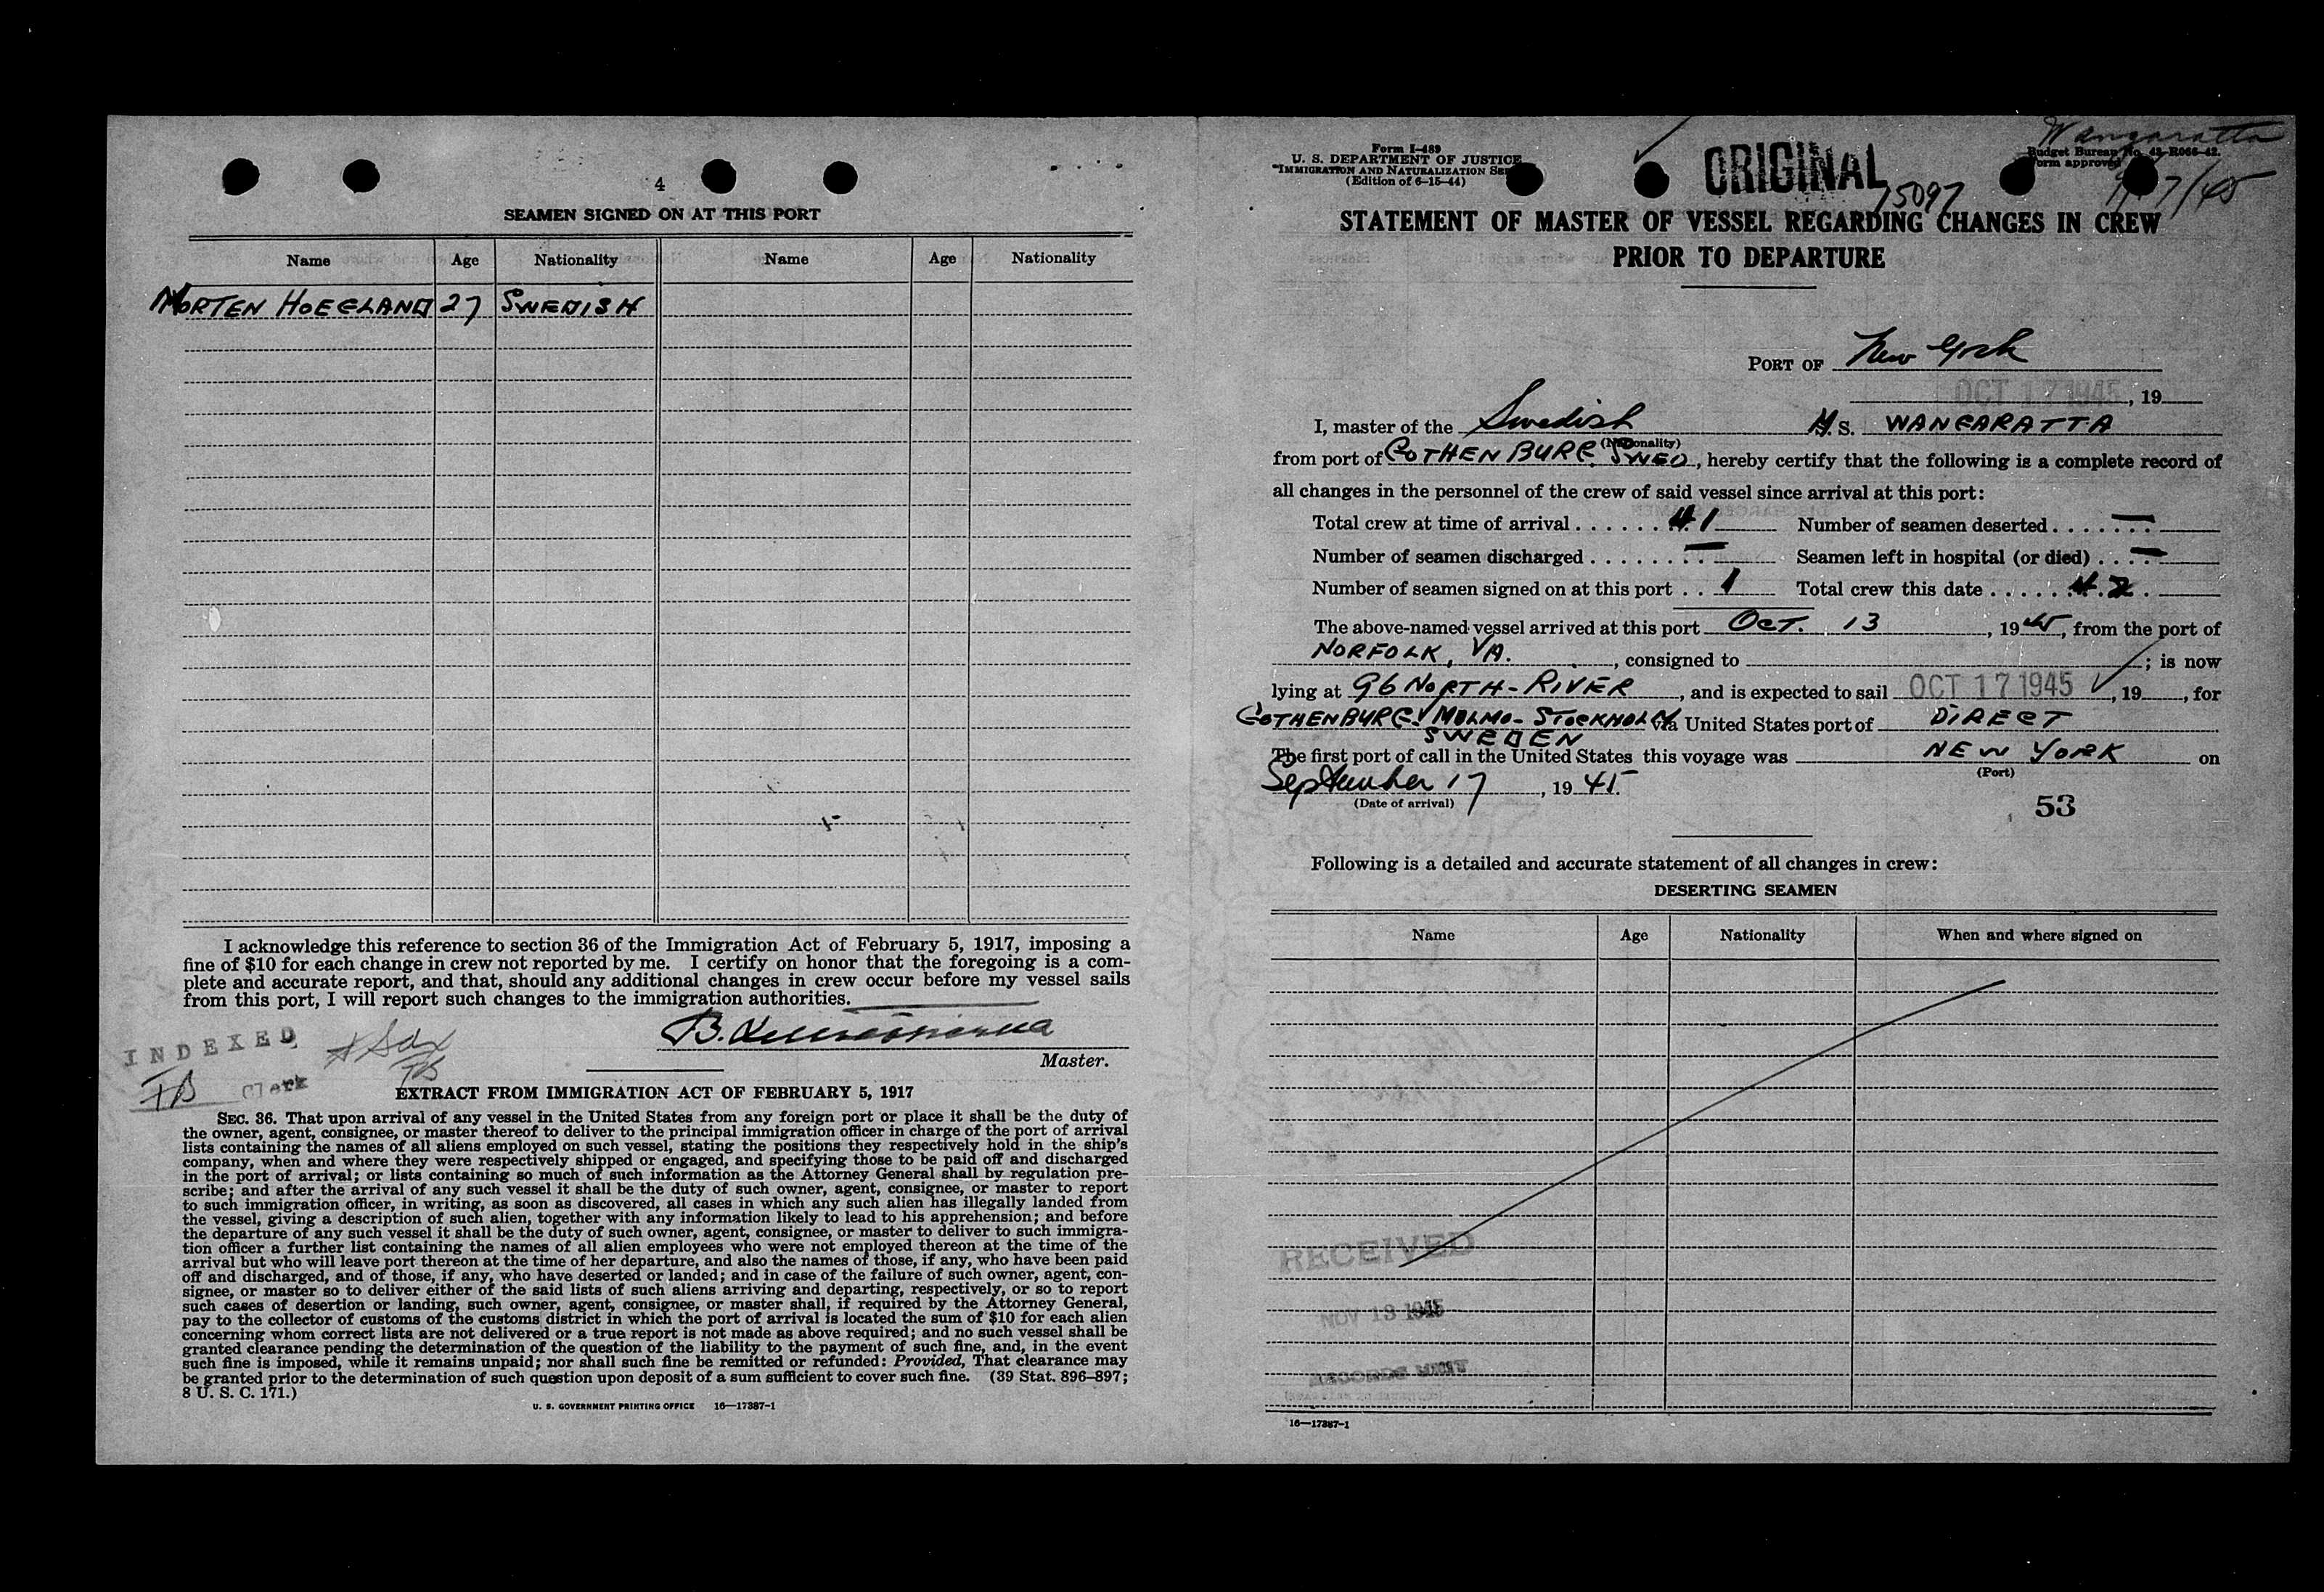 4
SEAMEN SIGNED ON AT THIS PORT
Name Age Nationality Name Age Nationality
MORTEN HOEGLAND 27 SWEDISH
I acknowledge this reference to section 36 of the Immigration Act of February 5, 1917, imposing a
fine of $10 for each change in crew not reported by me. I certify on honor that the foregoing is a com-
plete and accurate report, and that, should any additional changes in crew occur before my vessel sails
from this port, I will report such changes to the immigration authorities.
B.
Master.
INDEXED
FB Clerk
EXTRACT FROM IMMIGRATION ACT OF FEBRUARY 5, 1917
SEC. 36. That upon arrival of any vessel in the United States from any foreign port or place it shall be the duty of
the owner, agent, consignee, or master thereof to deliver to the principal immigration officer in charge of the port of arrival
lists containing the names of all aliens employed on such vessel, stating the positions they respectively hold in the ship's
company, when and where they were respectively shipped or engaged, and specifying those to be paid off and discharged
in the port of arrival; or lists containing so much of such information as the Attorney General shall by regulation pre-
scribe; and after the arrival of any such vessel it shall be the duty of such owner, agent, consignee, or master to report
to such immigration officer, in writing, as soon as discovered, all cases in which any such alien has illegally landed from
the vessel, giving a description of such alien, together with any information likely to lead to his apprehension; and before
the departure of any such vessel it shall be the duty of such owner, agent, consignee, or master to deliver to such immigra-
tion officer a further list containing the names of all alien employees who were not employed thereon at the time of the
arrival but who will leave port thereon at the time of her departure, and also the names of those, if any, who have been paid
off and discharged, and of those, if any, who have deserted or landed; and in case of the failure of such owner, agent, con-
signee, or master so to deliver either of the said lists of such aliens arriving and departing, respectively, or so to report
such cases of desertion or landing, such owner, agent, consignee, or master shall, if required by the Attorney General,
pay to the collector of customs of the customs district in which the port of arrival is located the sum of $10 for each alien
concerning whom correct lists are not delivered or a true report is not made as above required; and no such vessel shall be
granted clearance pending the determination of the question of the liability to the payment of such fine, and, in the event
such fine is imposed, while it remains unpaid; nor shall such fine be remitted or refunded: Provided, That clearance may
be granted prior to the determination of such question upon deposit of a sum sufficient to cover such fine. (39 Stat. 896–897;
8 U. S. C. 171.)
U. S. GOVERNMENT PRINTING OFFICE 16—17387-1
Form I-489
U. S. DEPARTMENT OF JUSTICE
IMMIGRATION AND NATURALIZATION SE
(Edition of 6-15-44)
ORIGINAL
75097
Wangaratta
Budget Bureau No. 43-R066-42.
Form approved
STATEMENT OF MASTER OF VESSEL REGARDING CHANGES IN CREW
PRIOR TO DEPARTURE
PORT OF New York
OCT 17 1945, 19
I, master of the Swedish M. S. WANGARATTA
(Nationality)
from port of GOTHENBURG, SWED, hereby certify that the following is a complete record of
all changes in the personnel of the crew of said vessel since arrival at this port:
Total crew at time of arrival 41 Number of seamen deserted —
Number of seamen discharged — Seamen left in hospital (or died) —
Number of seamen signed on at this port 1 Total crew this date 42
The above-named vessel arrived at this port OCT. 13, 1945, from the port of
NORFOLK, VA., consigned to ; is now
lying at 96 NORTH-RIVER, and is expected to sail OCT 17 1945, 19 , for
GOTHENBURG/MALMO-STOCKHOLM via United States port of DIRECT
SWEDEN
The first port of call in the United States this voyage was NEW YORK on
(Port)
September 17, 1945
(Date of arrival)
53
Following is a detailed and accurate statement of all changes in crew:
DESERTING SEAMEN
Name Age Nationality When and where signed on
RECEIVED
NOV 13 1945
RECORDS UNIT
16—17387-1